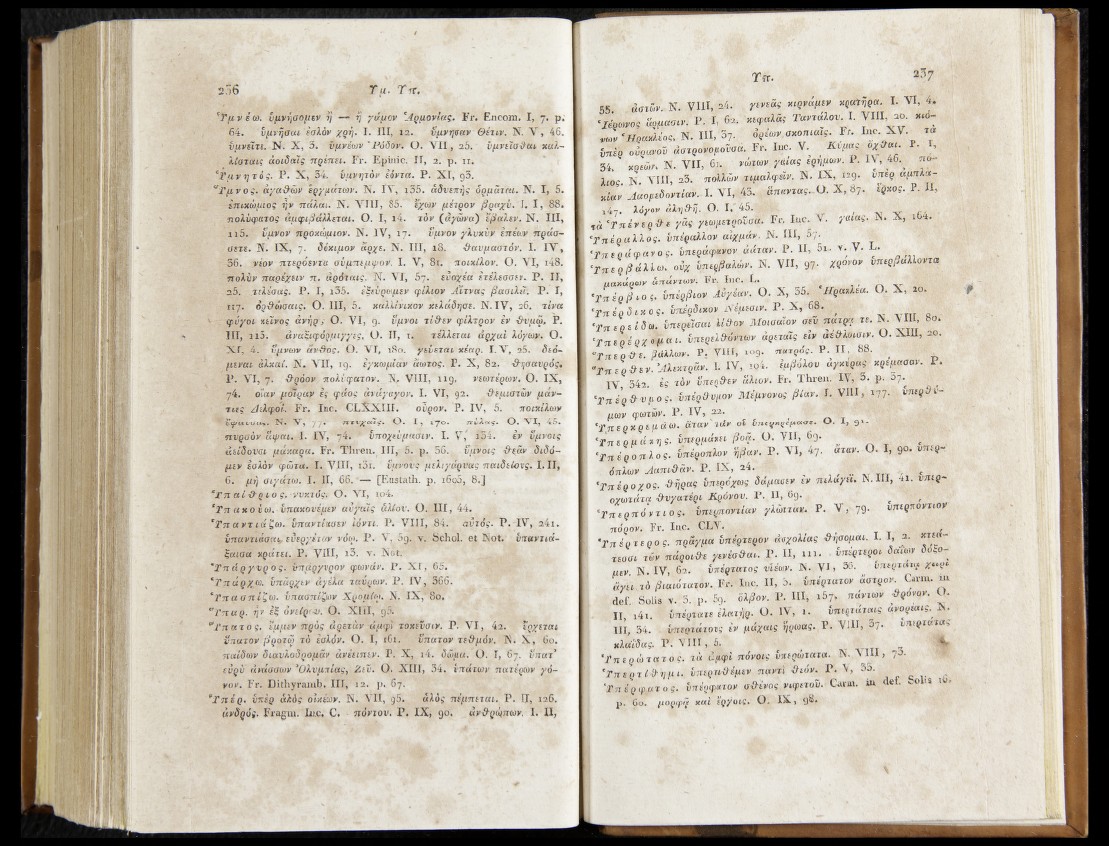 236 Υμ. Υπ.
Ὑμνέω. ὑμνήσομεν ἢ — ἢ γάμον Ἁρμονίας. Fr. Encom. I, 7. p.
64. ὑμνῆσαι ἐσλὸν χρή. I. III, 12. ὕμνησαν Θέτιν. N. V, 46.
ὑμνεῖτε. N. X, 5. ὑμνέων Ῥόδον. O. VII, 25. ὑμνεῖσθαι καλ-
λίσταις ἀοιδαῖς πρέπει. Fr. Epinic. II, 2. p. 11.
Ὑμνητός. P. X, 34. ὑμνητὸν ἐόντα. P. XI, 93.
Ὕμνος. ἀγαθῶν ἐργμάτων. N. IV, 135. ἁδυεπὴς ὁρμᾶται. N. I, 5.
ἐπικώμιος ἦν πάλαι. N. VIII, 85. ἔχων μέτρον βραχύ. I. I, 88.
πολύφατος ἀμφιβάλλεται. O. I, 14. τὸν (ἀγῶνα) ἔβαλεν. N. III,
115. ὕμνον προκώμιον. N. IV, 17. ὕμνον γλυκὺν ἐπέων πράσ-
σετε. N. IX, 7. δόκιμον ἄρχε. N. III, 18. θαυμαστόν. I. IV,
36. νέον πτερόεντα σύμπεμψον. I. V, 81. ποικίλον. O. VI, 148.
πολὺν παρέχειν π. ἀρόταις. N. VI, 57. εὐαχέα ἐτέλεσσεν. P. II,
25. τελέσας. P. I, 135. ἐξεύρωμεν φίλιον Αἴτνας βασιλεῖ. P. I,
117. ὀρθώσαις. O. III, 5. καλλίνικον κελάδησε. N. IV, 26. τίνα
φύγοι κεῖνος ἀνήρ, O. VI, 9. ὕμνοι τίθεν φίλτρον ἐν θυμῷ. P.
III, 115. ἀναξιφόρμιγγες, O. II, 1. τέλλεται ἀρχαὶ λόγων. O.
XI, 4. ὕμνων ἄνθος. O. VI, 180. γεύεται κέαρ. I. V, 25. δεό-
μεναι ἀλκαί. N. VII, 19. ἐγκωμίων ἄωτος. P. X, 82. θησαυρός.
P. VI, 7. θρόον πολύφατον. N. VIII, 119. νεωτέρων. O. IX,
74. οἵαν μοῖραν ἐς φάος ἀνάγαγον. I. VI, 92. θεμιστῶν μάν-
τιες Δελφοί. Fr. Inc. CLXXIII. οὖρον. P. IV, 5. ποικίλων
N. V, 77. πτυχαῖς. O. I, 170. πύλας. O. VI, 45.
πυρσὸν ἅψαι. I. IV, 74. ὑποχεύμασιν. I. V, 134. ἐν ὕμνοις
ἀείδουσι μάκαρα. Fr. Thren. III, 5. p. 36. ὕμνοις θεᾶν διδό-
μεν ἐσλὸν φῶτα. I. VIII, 131. ὕμνους μελιγάρυας παιδείους. I. II,
6. μὴ σιγάτω. I. II, 66. — [Eustath. p. 1605, 8.]
Ὑπαίθριος. νυκτός. O. VI, 104.
Ὑπακούω. ὑπακουέμεν αὐγαῖς ἁλίου. O. III, 44.
Ὑπαντιάζω. ὑπαντίασεν ἰόντι. P. VIII, 84. αὐτός. P. IV, 241.
ὑπαντιάσαι, εὐεργέταν νόῳ. P. V, 59. v. Schol. et Not. ὑπαντιά-
ξαισα κράτει. P. VIII, 13. v. Not.
Ὑπάργυρος. ὑπάργυρον φωνάν. P. XI, 65.
Ὑπάρχω. ὑπάρχεν ἀγέλα ταύρων. P. IV, 366.
Ὑπασπίζω. ὑπασπίζων Χρομίῳ. N. IX, 80.
Ὕπαρ. ἦν ἐξ ὀνείρου. O. XIII, 95.
Ὕπατος. ἔμμεν πρὸς ἀρετὰν ἀμφὶ τοκεῦσιν. P. VI, 42. ἔρχεται
ὕπατον βροτῷ τὸ ἐσλόν. O. I, 161. ὕπατον τεθμόν. N. X, 60.
παίδων διαυλοδρομᾶν ἀνέειπεν. P. X, 14. δῶμα. O. I, 67. ὕπατ'
εὐρὺ ἀνάσσων Ὀλυμπίας, Ζεῦ. O. XIII, 34. ὑπάτων πατέρων γό-
νον. Fr. Dithyramb. III, 12. p. 67.
Ὑπέρ. ὑπὲρ ἁλὸς οἰκέων. N. VII, 95. ἁλὸς πέμπεται. P. II, 126.
ἀνδρός. Fragm. Inc. C. πόντου. P. IX, 90. ἀνθρώπων. I. II,
Υπ. 237
55. ἀστῶν. N. VIII, 24. γενεᾶς κιρνάμεν κρατῆρα. I. VI, 4.
Ἱέρωνος ἅρμασιν. P. I, 62. κεφαλᾶς Ταντάλου. I. VIII, 20. κιό-
νων Ἡρακλέος. N. III, 37. ὀρέων σκοπιαῖς. Fr. Inc. XV. τὰ
ὑπὲρ οὐρανοῦ ἀστρονομοῦσα. Fr. Inc. V. Κύμας ὄχθαι. P. I,
34. κρεῶν. N. VII, 61. νώτων γαίας ἐρήμων. P. IV, 46. πό-
λιος. N. VIII, 23. πολλῶν τιμαλφεῖν. N. IX, 129. ὑπὲρ ἀμπλα-
κίαν Λαομεδοντίαν. I. VI, 43. ἅπαντας. O. X, 87. ἕρκος. P. II,
147. λόγον ἀληθῆ. O. I, 45.
τὰ Ὑπένερθε γᾶς γεωμετροῦσα. Fr. Inc. V. γαίας. N. X, 164.
Ὑπέραλλος. ὑπέραλλον αἰχμάν. N. III, 57.
Ὑπεράφανος. ὑπεράφανον ἀάταν. P. II, 51. v. V. L.
Ὑπερβάλλω. οὐχ ὑπερβαλών. N. VII, 97. χρόνον ὑπερβάλλοντα
μακάρων ἁπάντων. Fr. Inc. L.
Ὑπέρβιος. ὑπέρβιον Αὐγέαν. O. X, 35. Ἡρακλέα. O. X, 20.
Ὑπέρδικος. ὑπέρδικον Νέμεσιν. P. X, 68.
Ὑπερείδω. ὑπερεῖσαι λίθον Μοισαῖον σεῦ πάτρᾳ τε. N. VIII, 80.
Ὑπερέρχομαι. ὑπερελθόντων ἀρεταῖς εἶν ἀέθλοισιν. O. XIII, 20.
Ὕπερθε. βάλλων. P. VIII, 109. πατρός. P. II, 88.
Ὕπερθεν. Ἀλεκτρᾶν. I. IV, 104. ἐμβόλου ἀγκύρας κρέμασον. P.
IV, 342. ἐς τὸν ὕπερθεν ἅλιον. Fr. Thren. IV, 3. p. 37.
Ὑπέρθυμος. ὑπέρθυμον Μέμνονος βίαν. I. VIII, 177. ὑπερθύ-
μων φωτῶν. P. IV, 22.
Ὑπερκρεμάω. ἄταν τάν οἱ ὑπερκρέμασε. O. I, 91.
Ὑπερμάκης. ὑπερμάκει βοᾷ. O. VII, 69.
Ὑπέροπλος. ὑπέροπλον ἥβαν. P. VI, 47. ἄταν. O. I, 90. ὑπερ-
όπλων Λαπιθᾶν. P. IX, 24.
Ὑπέροχος. θῆρας ὑπερόχως δάμασεν ἐν πελάγεϊ. N. III, 41. ὑπερ-
οχωτάτᾳ θυγατέρι Κρόνου. P. II, 69.
Ὑπερπόντιος. ὑπερποντίαν γλῶτταν. P. V, 79. ὑπερπόντιον
πόρον. Fr. Inc. CLV.
Ὑπέρτερος. πρᾶγμα ὑπέρτερον ἀσχολίας θήσομαι. I. I, 2. κτεά-
τεσσι τῶν πάροιθε γενέσθαι. P. II, 111. ὑπέρτεροι δαΐων δόξο-
μεν. N. IV, 62. ὑπέρτατος υἱέων. N. VI, 36. ὑπερτάτᾳ χειρὶ
ἄγει τὸ βιαιότατον. Fr. Inc. II, 5. ὑπέρτατον ἄστρον. Carm. in
def. Solis v. 3. p. 59. ὄλβον. P. III, 157. πάντων θρόνον. O.
II, 141. ὑπέρτατε ἐλατήρ. O. IV, 1. ὑπερτάταις ἀνορέαις. N.
III, 34. ὑπερτάτοις ἐν μάχαις ἥρωας. P. VIII, 37. ὑπερτάτας
κλαΐδας. P. VIII, 5.
Ὑπερώτατος. τὰ ἀμφὶ πόνοις ὑπερώτατα. N. VIII, 73.
Ὑπερτίθημι. ὑπερτιθέμεν παντὶ θεόν. P. V, 35.
Ὑπέρφατος. ὑπέρφατον σθένος νιφετοῦ. Carm. in def. Solis 16.
p. 60. μορφᾷ καὶ ἔργοις. O. IX, 98.